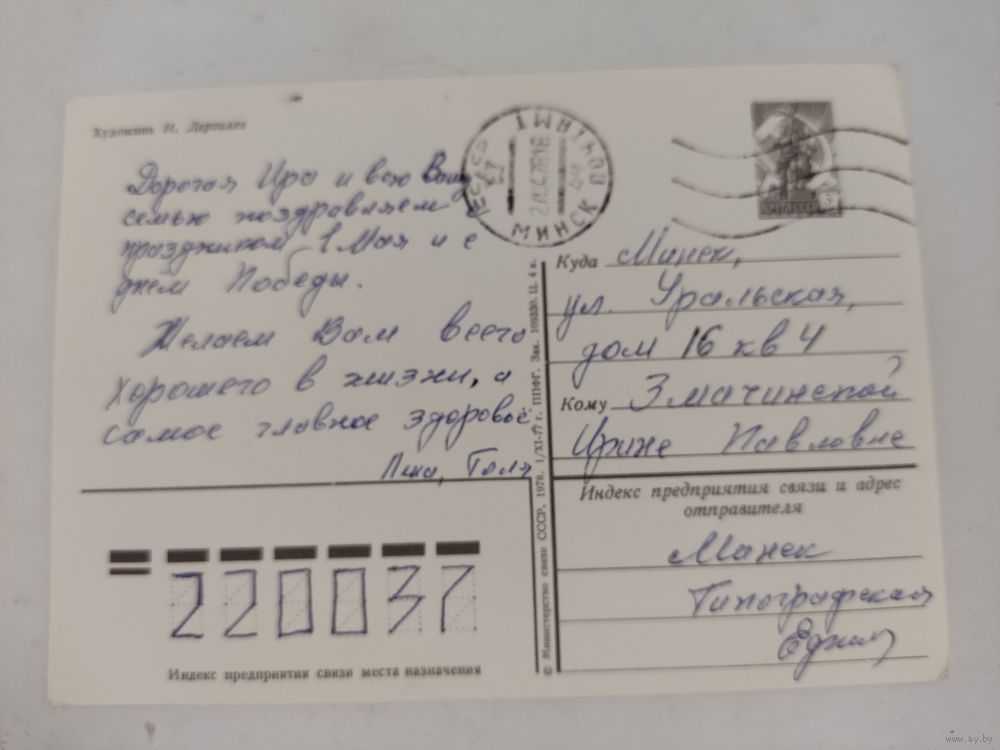 Художник И. Дергилев
Дорогая Ира и всю Вашу
семью поздравляем с
праздником 1 Мая и с
днем Победы.
Желаем Вам всего
хорошего в жизни, а
самое главное здоровье
Толя
ПОЧТАМТ
МИНСК
ПОЧТА СССР
Куда Минск,
ул. Уральская,
дом 16 кв 4
Кому Змачинской
Ирине Павловне
Индекс предприятия связи и адрес
отправителя
Минск
Типографская
220037
Индекс предприятия связи места назначения
© Министерство связи СССР, 1978. 1/XI-77 г. ППФГ. Зак. Ц. 4 к.
www.ay.by